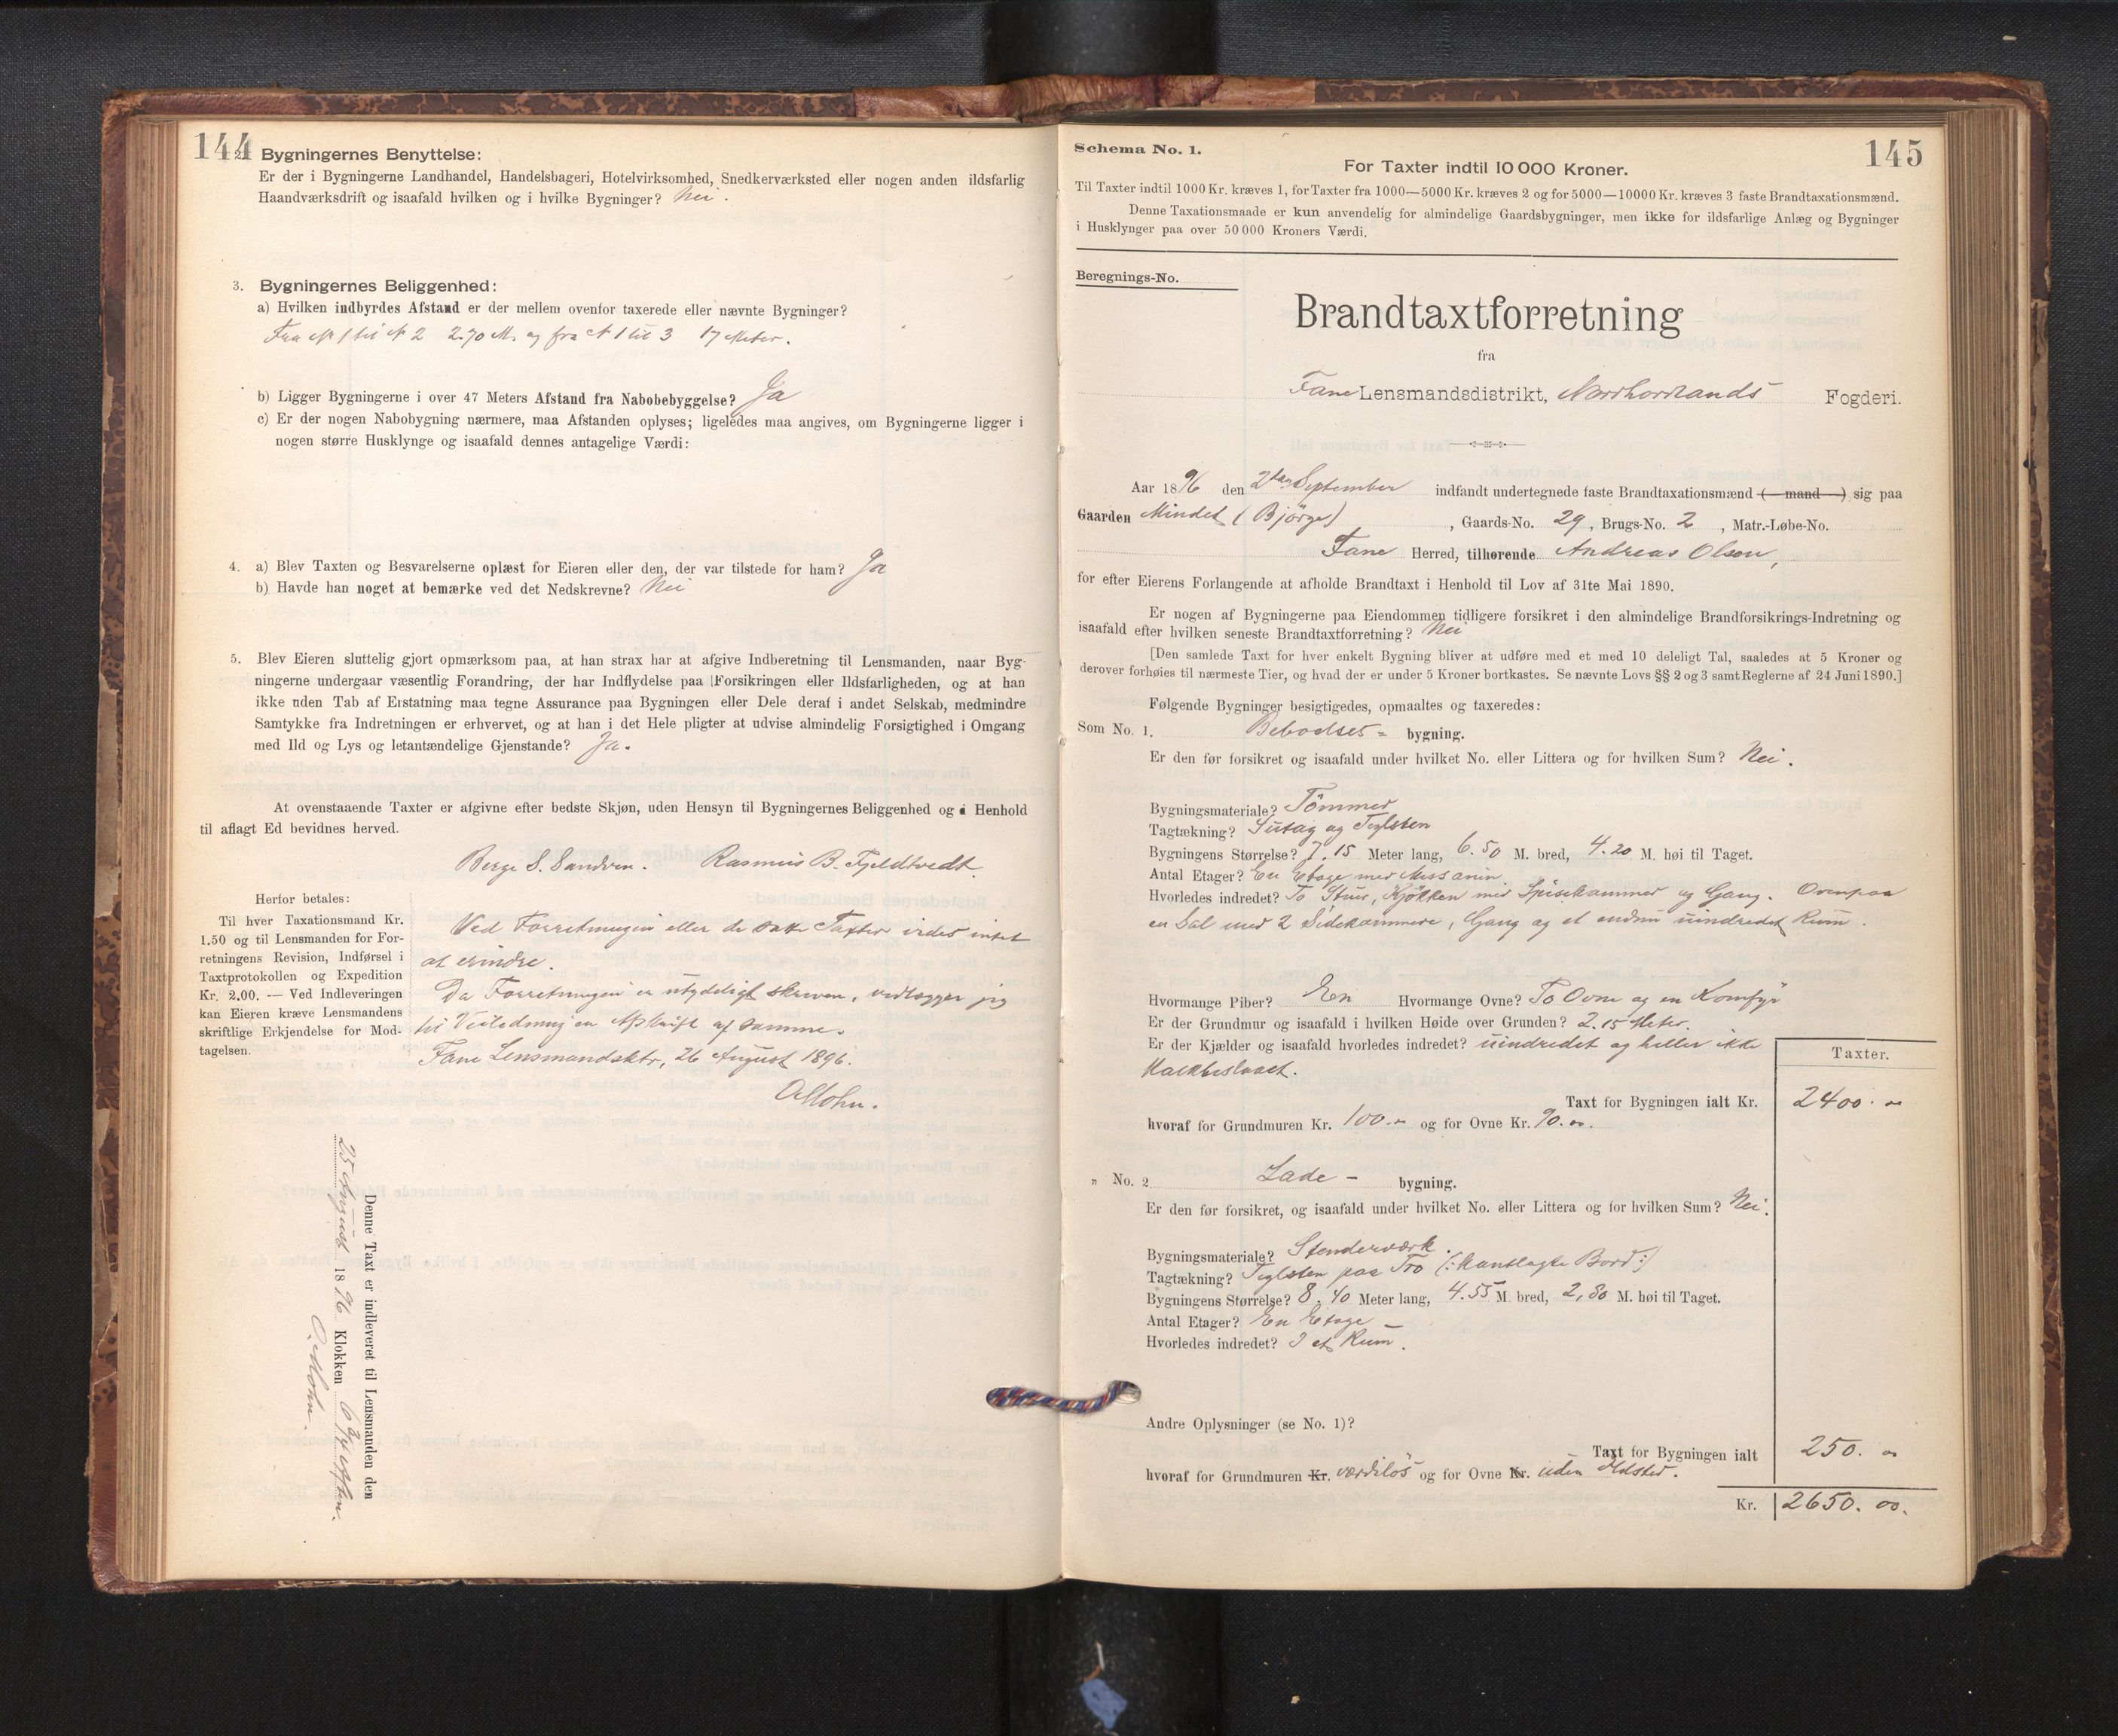 144
2. Bygningernes Benyttelse:
Er der i Bygningerne Landhandel, Handelsbageri, Hotelvirksomhed, Snedkerværksted eller nogen anden ildsfarlig
Haandværksdrift og isaafald hvilken og i hvilke Bygninger? Nei.
3. Bygningernes Beliggenhed:
a) Hvilken indbyrdes Afstand er der mellem ovenfor taxerede eller nævnte Bygninger?
Fra N 1 til N 2 2.70 M. og fra N 1 til 3 17 Meter.
b) Ligger Bygningerne i over 47 Meters Afstand fra Nabobebyggelse? Ja
c) Er der nogen Nabobygning nærmere, maa Afstanden oplyses; ligeledes maa angives, om Bygningerne ligger i
nogen større Husklynge og isaafald dennes antagelige Værdi:
4. a) Blev Taxten og Besvarelserne oplæst for Eieren eller den, der var tilstede for ham? Ja
b) Havde han noget at bemærke ved det Nedskrevne? Nei
5. Blev Eieren sluttelig gjort opmærksom paa, at han strax har at afgive Indberetning til Lensmanden, naar Byg-
ningerne undergaar væsentlig Forandring, der har Indflydelse paa Forsikringen eller Ildsfarligheden, og at han
ikke uden Tab af Erstatning maa tegne Assurance paa Bygningen eller Dele deraf i andet Selskab, medmindre
Samtykke fra Indretningen er erhvervet, og at han i det Hele pligter at udvise almindelig Forsigtighed i Omgang
med Ild og Lys og letantændelige Gjenstande? Ja.
At ovenstaaende Taxter er afgivne efter bedste Skjøn, uden Hensyn til Bygningernes Beliggenhed og i Henhold
til aflagt Ed bevidnes herved.
Berge S. Sandven. Rasmus B. Fjeldtvedt.
Herfor betales:
Til hver Taxationsmand Kr.
1.50 og til Lensmanden for For-
retningens Revision, Indførsel i
Taxtprotokollen og Expedition
Kr. 2.00. — Ved Indleveringen
kan Eieren kræve Lensmandens
skriftlige Erkjendelse for Mod-
tagelsen.
Ved Forretningen eller de satte Taxter vides intet
at erindre.
Da Forretningen er utydeligt skreven, vedlægger jeg
til Veiledning en Afskrift af samme.
Fane Lensmandsktr, 26 August 1896.
O Mohn.
Denne Taxt er indleveret til Lensmanden den
25 August 1896 Klokken 6 Eft.
O. Mohn.
145
Schema No. 1.
For Taxter indtil 10 000 Kroner.
Til Taxter indtil 1000 Kr. kræves 1, for Taxter fra 1000—5000 Kr. kræves 2 og for 5000—10000 Kr. kræves 3 faste Brandtaxationsmænd.
Denne Taxationsmaade er kun anvendelig for almindelige Gaardsbygninger, men ikke for ildsfarlige Anlæg og Bygninger
i Husklynger paa over 50 000 Kroners Værdi.
Beregnings-No.
Brandtaxtforretning
fra
Fane Lensmandsdistrikt, Nordhordlands Fogderi.
Aar 1896 den 2den September indfandt undertegnede faste Brandtaxationsmænd (—mand—) sig paa
Gaarden Mindet (Björge), Gaards-No. 29, Brugs-No. 2, Matr.-Løbe-No.
Fane Herred, tilhørende Andreas Olsen,
for efter Eierens Forlangende at afholde Brandtaxt i Henhold til Lov af 31te Mai 1890.
Er nogen af Bygningerne paa Eiendommen tidligere forsikret i den almindelige Brandforsikrings-Indretning og
isaafald efter hvilken seneste Brandtaxtforretning? Nei
[Den samlede Taxt for hver enkelt Bygning bliver at udføre med et med 10 deleligt Tal, saaledes at 5 Kroner og
derover forhøies til nærmeste Tier, og hvad der er under 5 Kroner bortkastes. Se nævnte Lovs §§ 2 og 3 samt Reglerne af 24 Juni 1890.]
Følgende Bygninger besigtigedes, opmaaltes og taxeredes:
Som No. 1. Beboelses- bygning.
Er den før forsikret og isaafald under hvilket No. eller Littera og for hvilken Sum? Nei.
Bygningsmateriale? Tömmer
Tagtækning? Sutag og Teglsten
Bygningens Størrelse? 7.15 Meter lang, 6.50 M. bred, 4.20 M. høi til Taget.
Antal Etager? En Etage med Messanin
Hvorledes indredet? To Stuer, Kjøkken med Spisekammer og Gang. Ovenpaa
en Sal med 2 Sidekammere, Gang og et endnu uindredet Rum.
Hvormange Piber? En Hvormange Ovne? To Ovne og en Komfyr
Er der Grundmur og isaafald i hvilken Høide over Grunden? 2.15 Meter.
Er der Kjælder og isaafald hvorledes indredet? uindredet og heller ikke
Kalkbeslaaet.
Taxter.
Taxt for Bygningen ialt Kr. 2400. 00
hvoraf for Grundmuren Kr. 100.00 og for Ovne Kr. 90.00.
" No. 2 Lade- bygning.
Er den før forsikret, og isaafald under hvilket No. eller Littera og for hvilken Sum? Nei.
Bygningsmateriale? Stenderværk.
Tagtækning? Teglsten paa Tro (: kantlagte Bord :)
Bygningens Størrelse? 8.40 Meter lang, 4.55 M. bred, 2,80 M. høi til Taget.
Antal Etager? En Etage
Hvorledes indredet? I et Rum.
Andre Oplysninger (se No. 1)?
Taxt for Bygningen ialt 250. 00
hvoraf for Grundmuren Kr. værdilös og for Ovne Kr. uden Ildsted.
Kr. 2650. 00.